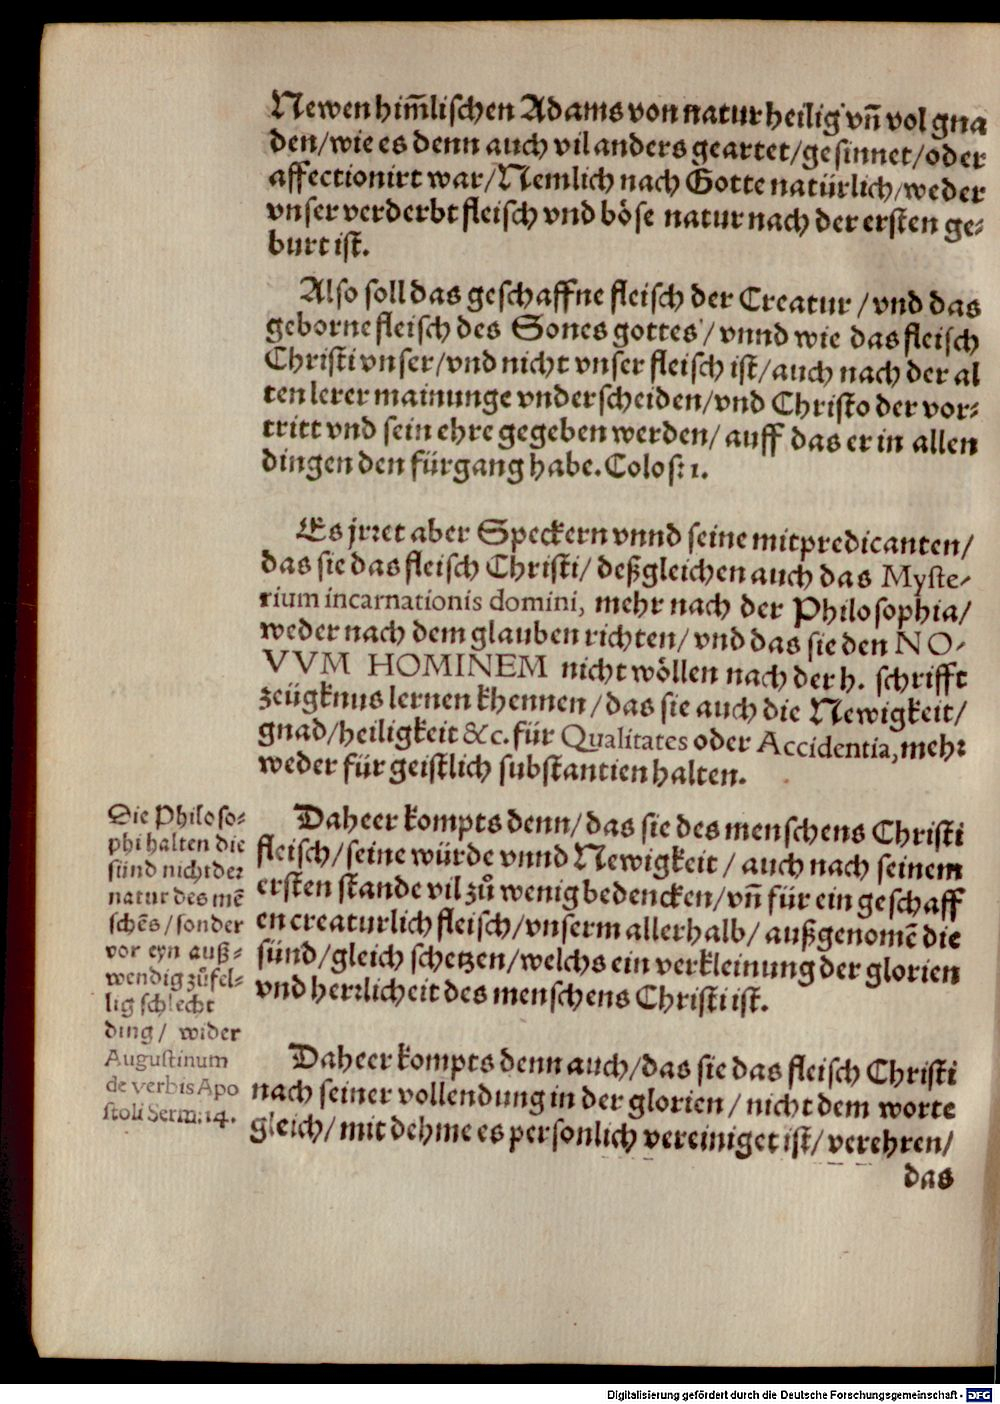 Newen him̃lischen Adams von natur heilig vñ vol gna
den/wie es denn auch vil anders geartet/gesinnet/oder
affectionirt war/Nemlich nach Gotte natürlich/weder
vnser verderbt fleisch vnd böse natur nach der ersten ge-
burt ist.
Also soll das geschaffne fleisch der Creatur/vnd das
geborne fleisch des Sones gottes/vnnd wie das fleisch
Christi vnser/vnd nicht vnser fleisch ist/auch nach der al
ten lerer mainunge vnderscheiden/vnd Christo der vor-
tritt vnd sein ehre gegeben werden/auff das er in allen
dingen den fürgang habe. Colos: 1.
Es jrret aber Speckern vnnd seine mitpredicanten/
das sie das fleisch Christi/deßgleichen auch das Myste-
rium incarnationis domini, mehr nach der Philosophia/
weder nach dem glauben richten/vnd das sie den NO-
VVM HOMINEM nicht wöllen nach der h. schrifft
zeügknus lernen khennen/das sie auch die Newigkeit/
gnad/heiligkeit &c. für Qualitates oder Accidentia, mehr
weder für geistlich substantien halten.
Daheer kompts denn/das sie des menschens Christi
fleisch/seine würde vnnd Newigkeit/auch nach seinem
ersten stande vil zů wenig bedencken/vñ für ein geschaff
en creaturlich fleisch/vnserm allerhalb/außgenomē die
sünd/gleich schetzen/welchs ein verkleinung der glorien
vnd herrlicheit des menschens Christi ist.
Die Philoso-
phi halten die
sünd nicht der
natur des mē
schēs/sonder
vor eyn auß-
wendig zůfel-
lig schlecht
ding/ wider
Augustinum
de verbis Apo
stoli Serm: 14.
Daheer kompts denn auch/das sie das fleisch Christi
nach seiner vollendung in der glorien/nicht dem worte
gleich/mit dehme es personlich vereiniget ist/verehren/
das
Digitalisierung gefördert durch die Deutsche Forschungsgemeinschaft - DFG